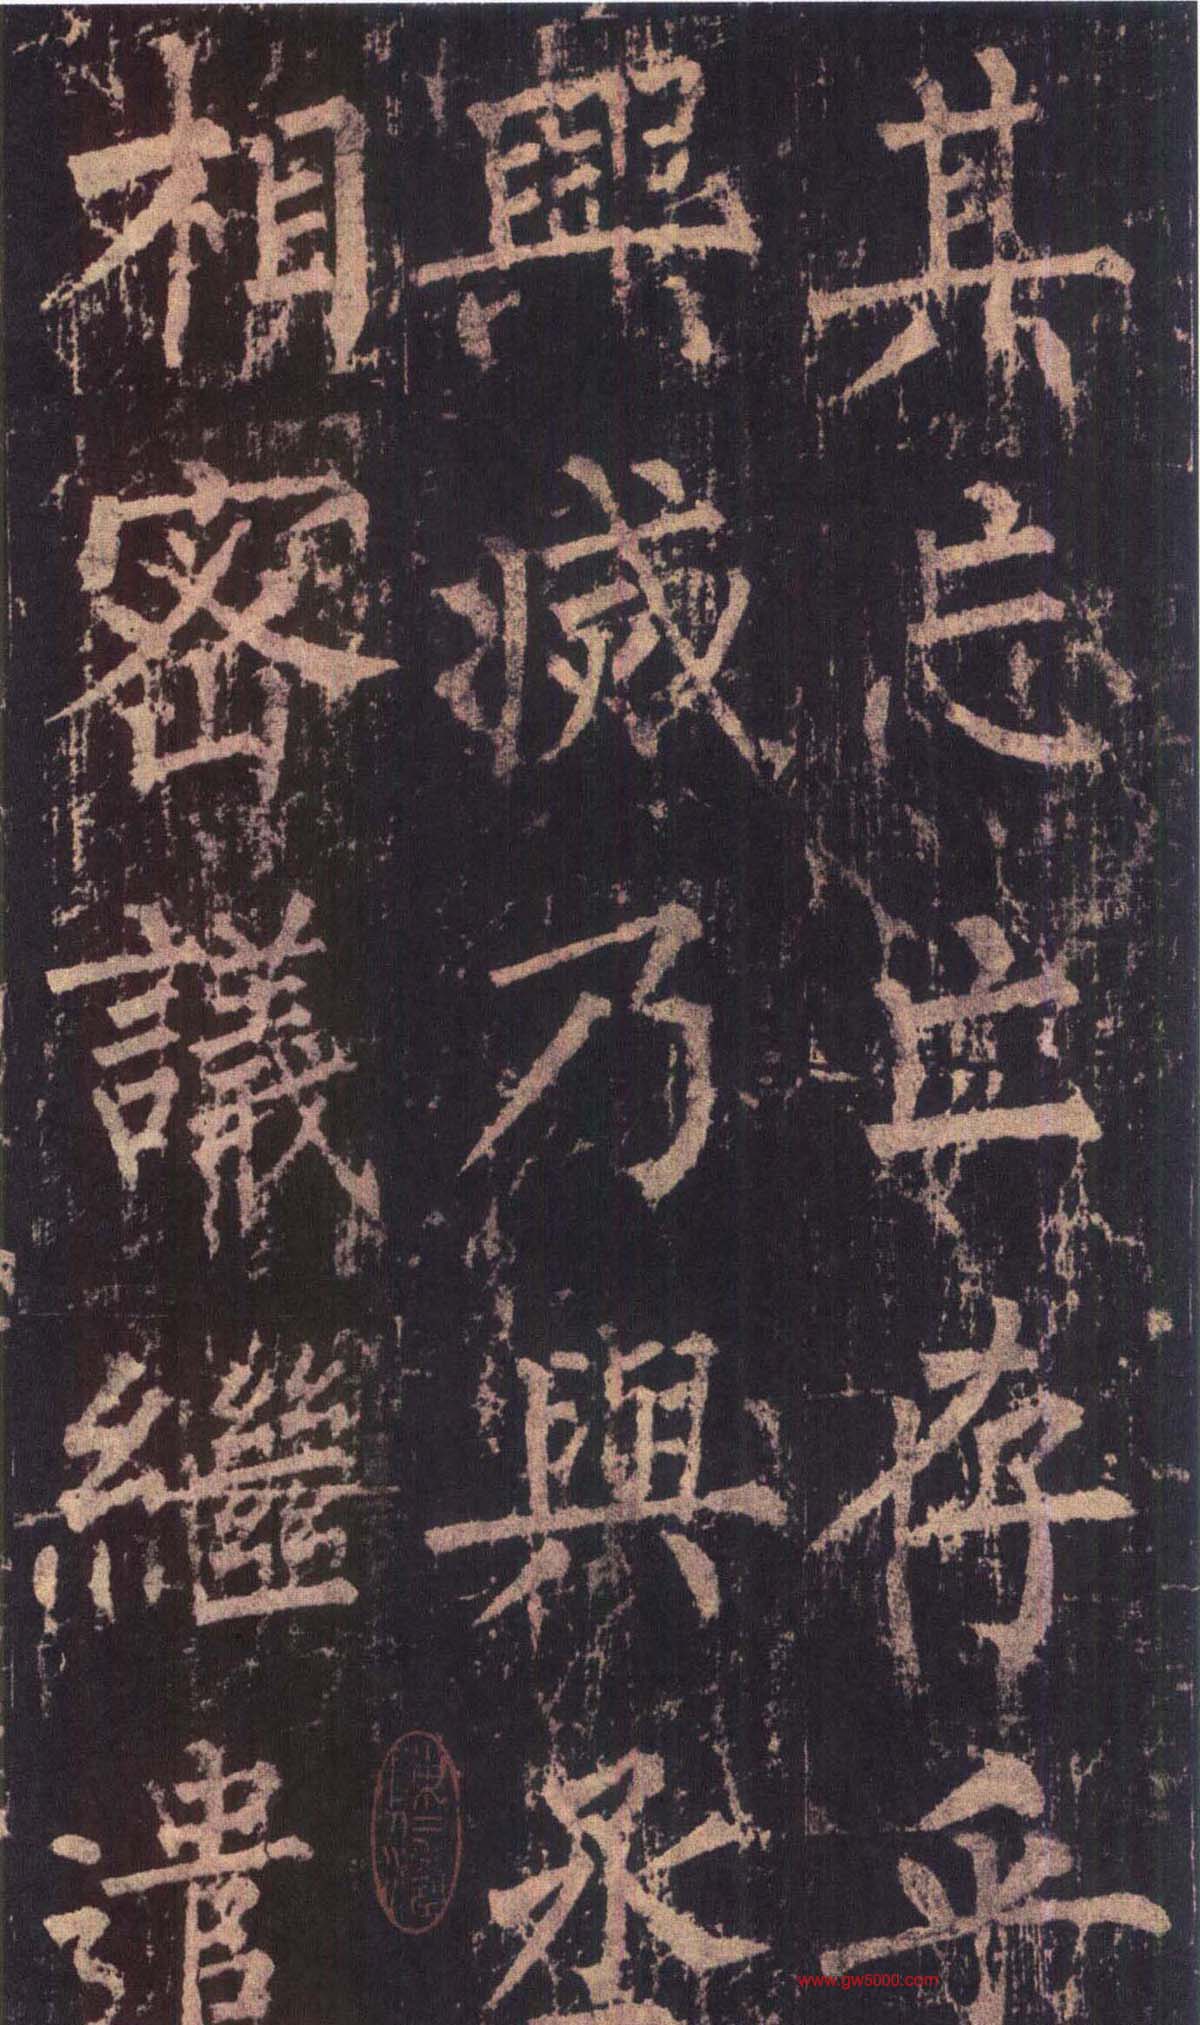 其忘存乎
興滅乃與丞
相密議繼遣
www.gw5000.com